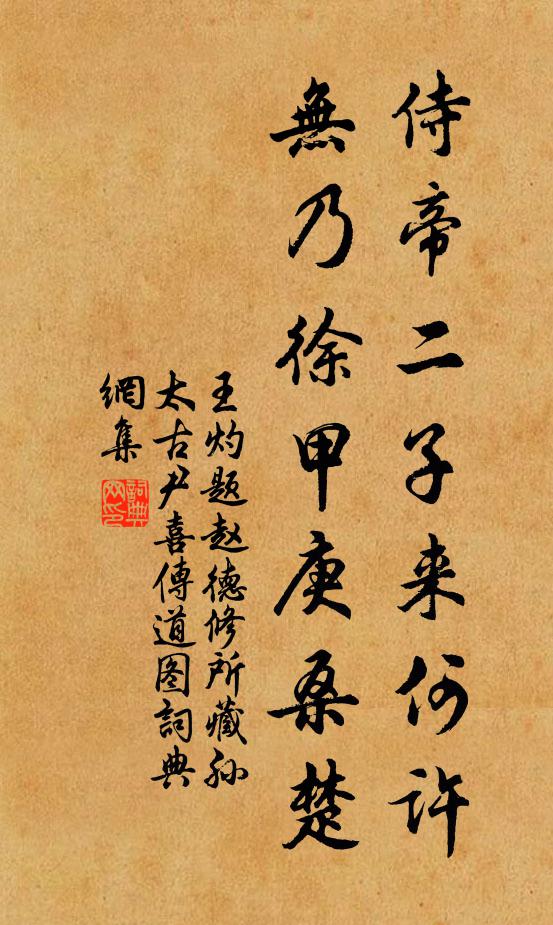 侍帝二子来何許
無乃徐甲庚桑楚
王灼题赵德修所藏孙
太古尹喜傳道图詞典
網集
詞典
网印